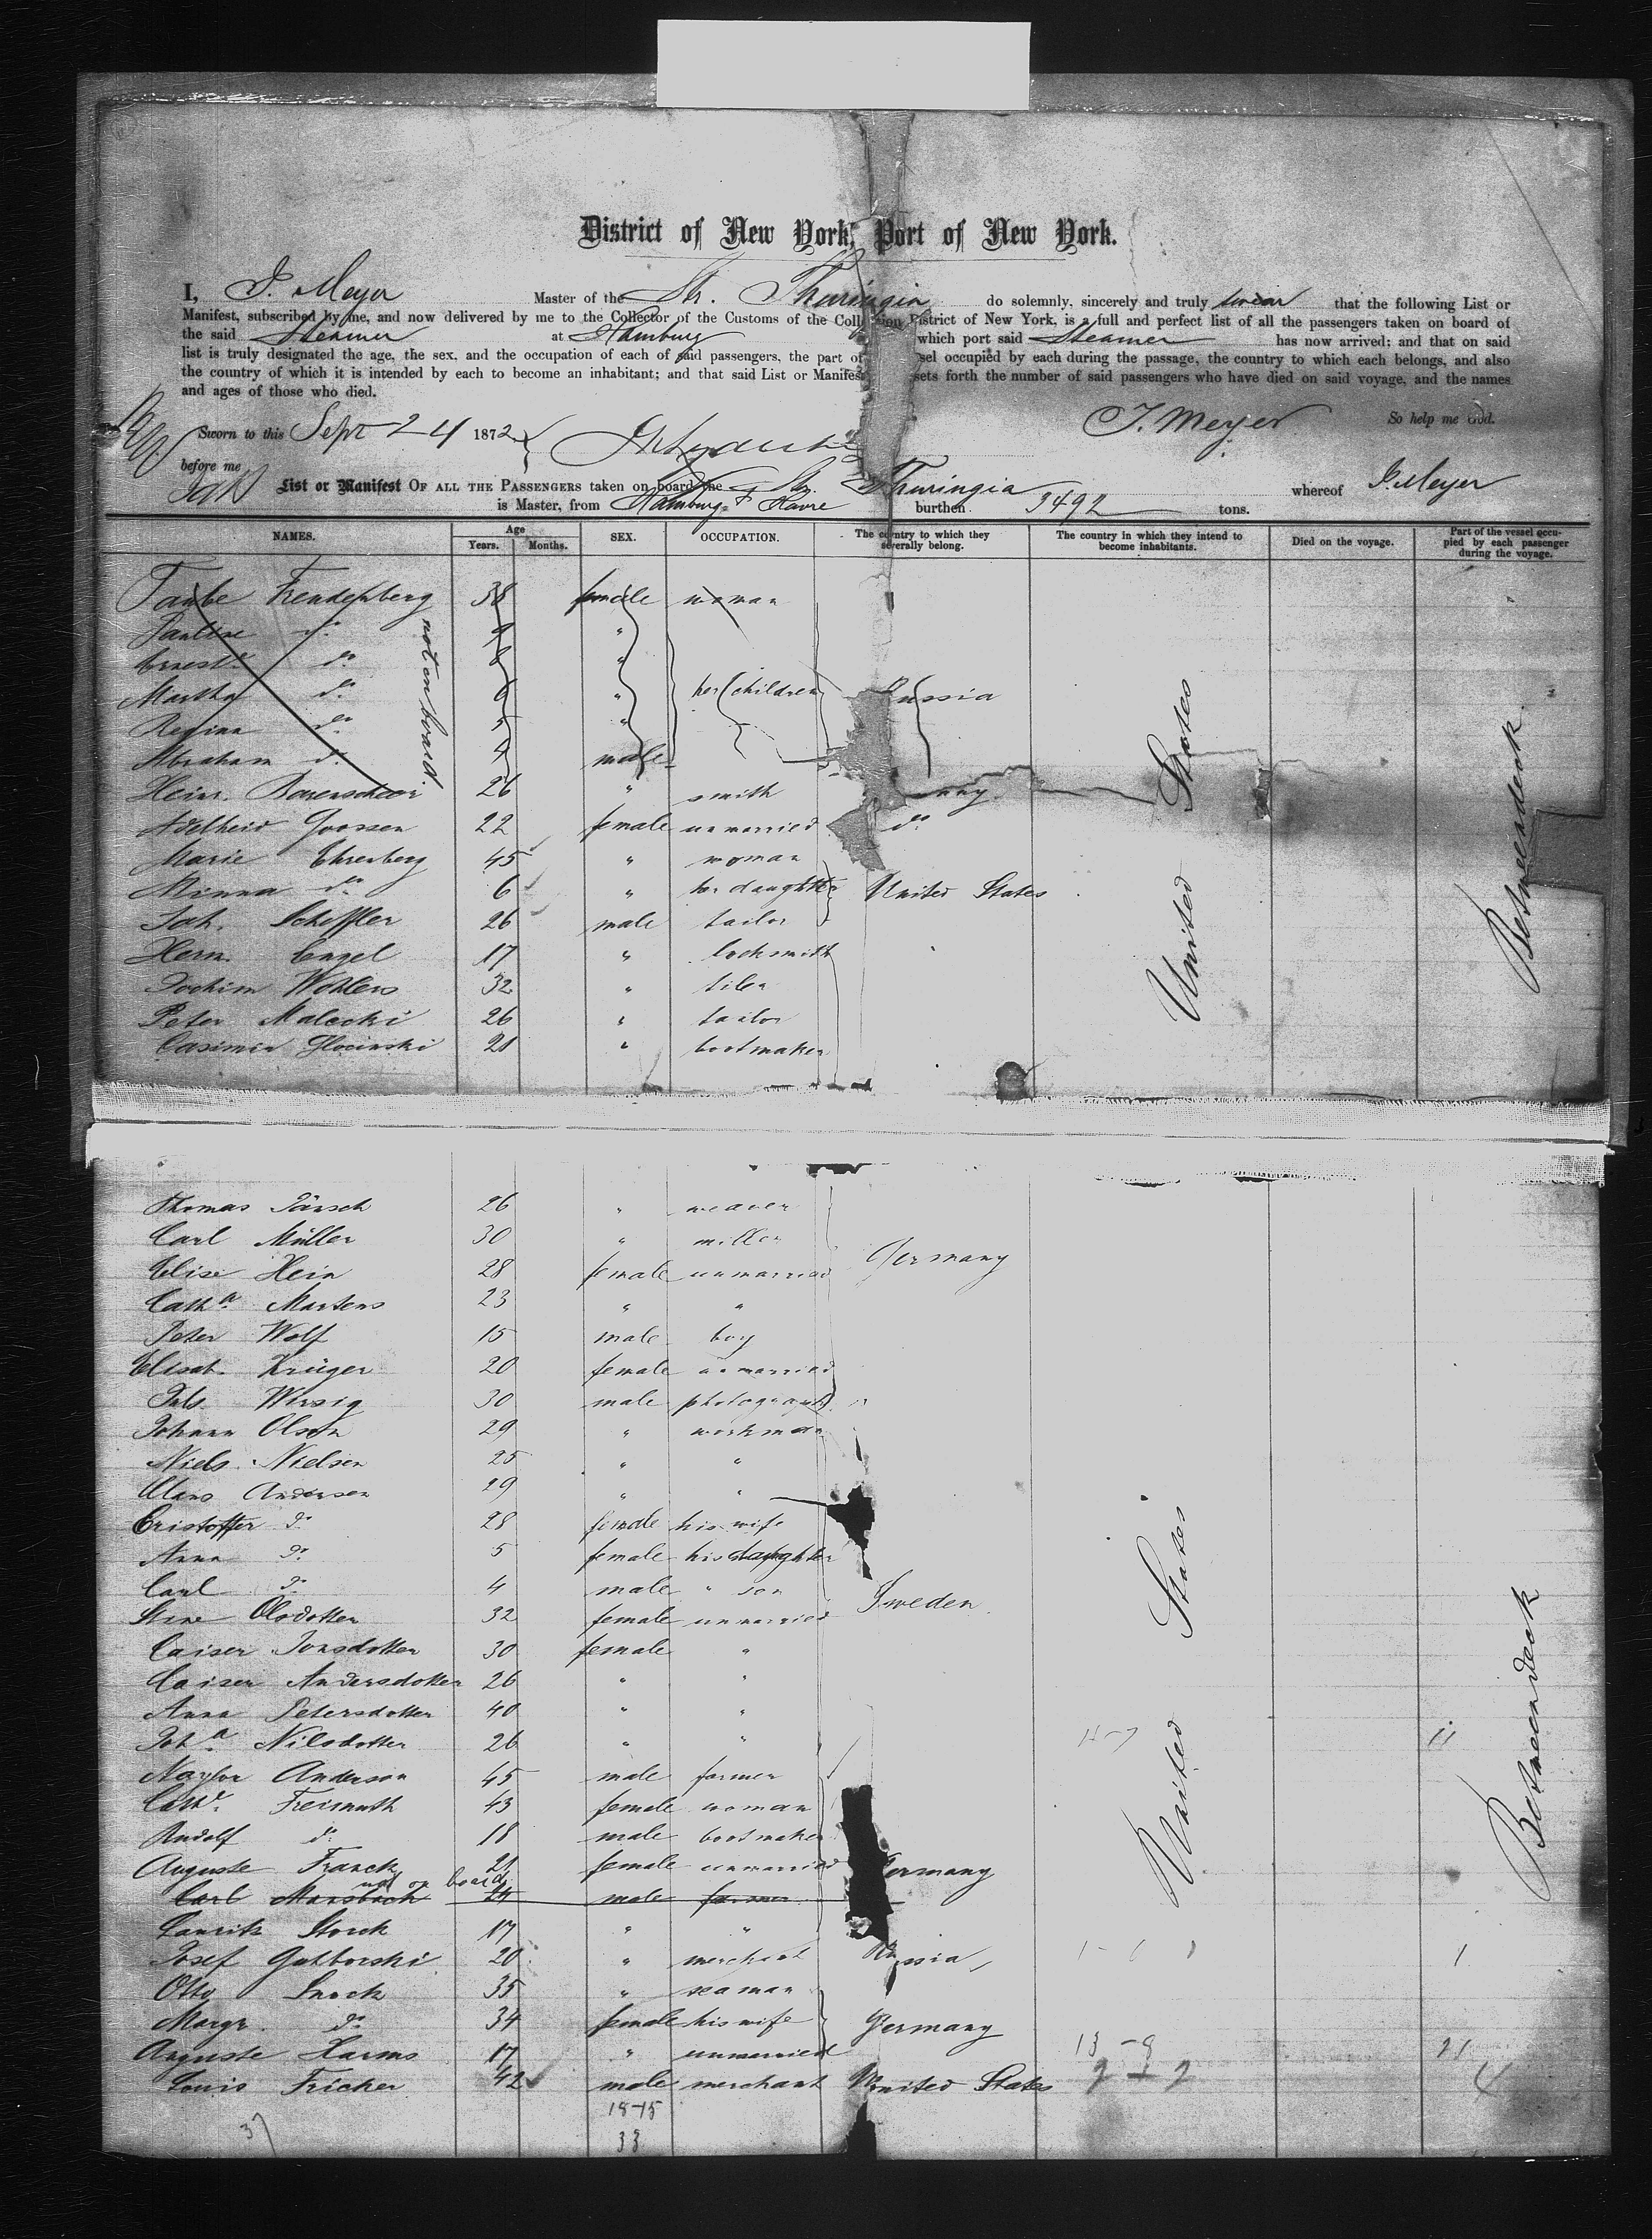 District of New York, Port of New York.
I, J. Meyer Master of the Str. Thuringia do solemnly, sincerely and truly swear that the following List or
Manifest, subscribed by me, and now delivered by me to the Collector of the Customs of the Collection District of New York, is a full and perfect list of all the passengers taken on board of
the said Steamer at Hamburg which port said Steamer has now arrived; and that on said
list is truly designated the age, the sex, and the occupation of each of said passengers, the part of sel occupied by each during the passage, the country to which each belongs, and also
the country of which it is intended by each to become an inhabitant; and that said List or Manifest sets forth the number of said passengers who have died on said voyage, and the names
and ages of those who died.
J. Meyer So help me God.
Sworn to this Sept 24 1872
before me
List or Manifest OF ALL THE PASSENGERS taken on board the Str. Thuringia whereof J. Meyer
is Master, from Hamburg & Havre burthen 3492 tons.
NAMES. Age Years. Months. SEX. OCCUPATION. The country to which they severally belong. The country in which they intend to become inhabitants. Died on the voyage. Part of the vessel occupied by each passenger during the voyage.
Taube Freudenberg 38 female woman
Pauline do 9 "
Ernest do 8 "
Martha do 6 " her children Russia
Regina do 5 "
Abraham do 4 male
not on board.
Heinr. 26 " smith many
Adelheid Goossen 22 female unmarried do
Marie Ehrenberg 45 " woman
Minna do 6 " her daughter United States
Joh. Scheffler 26 male tailor
Herm. Engel 17 " locksmith
Jochim Wohlers 32 " tiler
Peter Malecki 26 " tailor
Casimir Glocinski 21 " bootmaker
United States
Betweendeck
Thomas Järsch 26 " weaver
Carl Müller 30 " miller
Elise Hein 28 female unmarried Germany
Catha Martens 23 " "
Peter Wolf 15 male boy
Elisab. Krüger 20 female unmarried
Juls. Wirsig 30 male photograph
Johann Olson 29 " workman
Niels Nielsen 25 " "
Claus Andersen 29 " "
Cristoffer do 28 female his wife
Anna do 5 female his daughter
Carl do 4 male " son Sweden
Stine Olsdotter 32 female unmarried
Caiser Jonsdotter 30 female "
Caisen Andersdotter 26 " "
Anna Petersdotter 40 " "
Joha Nilsdotter 26 " "
Naylor Anderson 45 male farmer
Cathe. Freimuth 43 female woman
Rudolf do 18 male bootmaker
Auguste Franck 21 female unmarried Germany
not on board
Carl Marsbach 24 male farmer
Lauritz Storck 17 " "
Josef Gutborski 20 " merchant Russia
Otto Snock 35 " seaman
Margr. do 34 female his wife Germany
Auguste Harms 17 " unmarried
Louis Fricker 42 male merchant United States
United States
Betweendeck
18-15
33
37